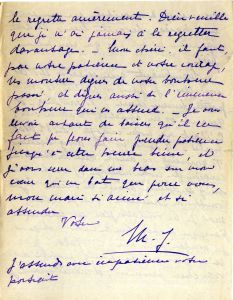 le regrette amèrement. Dieu veuille
que je n'ai jamais à le regretter
davantage. – Mon chéri, il faut,
par votre patience et votre courage,
vous montrer digne de votre bonheur
passé, et digne aussi de l'immense
bonheur qui vous attend. – Je vous
envoie autant de baisers qu'il en
faut pour faire prendre patience
jusqu'à cette bonne heure, et
je vous serre dans mes bras sur mon
cœur qui ne bat que pour vous,
mon mari si aimé et si
attendu
Votre
M. J.
J'attends avec impatience votre
portrait